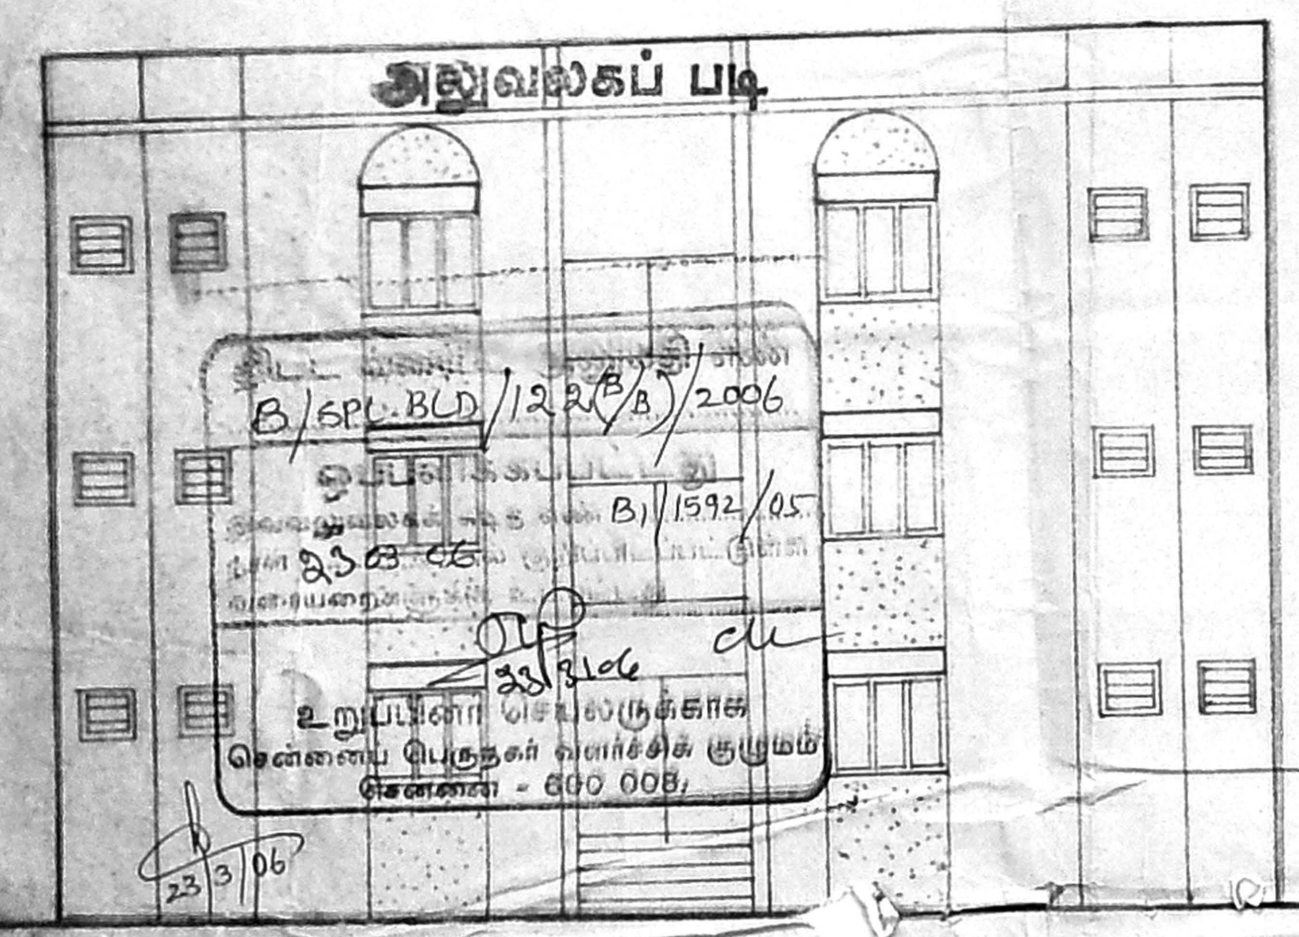 அலுவலகப் படி
திட்ட அனுமதி எண்
B/SPL.BLD/122(B/B)/2006
ஒப்பளிக்கப்பட்டது
இவ்வலுவலகக் கடித எண் B1/1592/05
நாள் 23 03 06 ல் குறிப்பிடப்பட்டுள்ள
வரையறைகளுக்கு உட்பட்டது
23/3/06
உறுப்பினர் செயலருக்காக
சென்னைப் பெருநகர் வளர்ச்சிக் குழுமம்
சென்னை - 600 008.
23/3/06